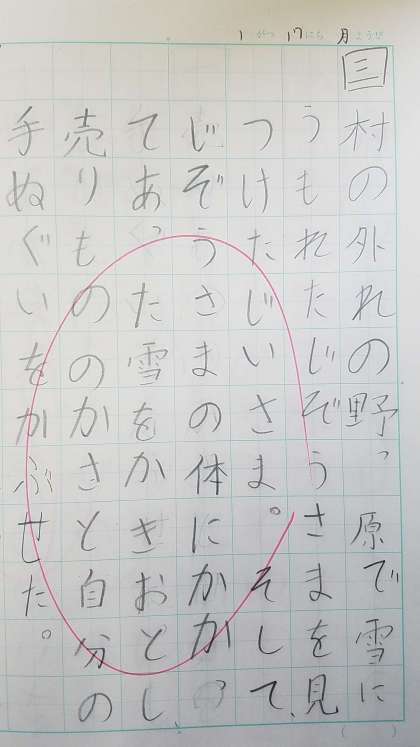 1がつ17にち月ようび
三
村の外れの野っ原で雪に
うもれたじぞうさまを見
つけたじいさま。そして、
じぞうさまの体にかかっ
てあった雪をかきおとし、
売りもののかさと自分の
手ぬぐいをかぶせた。